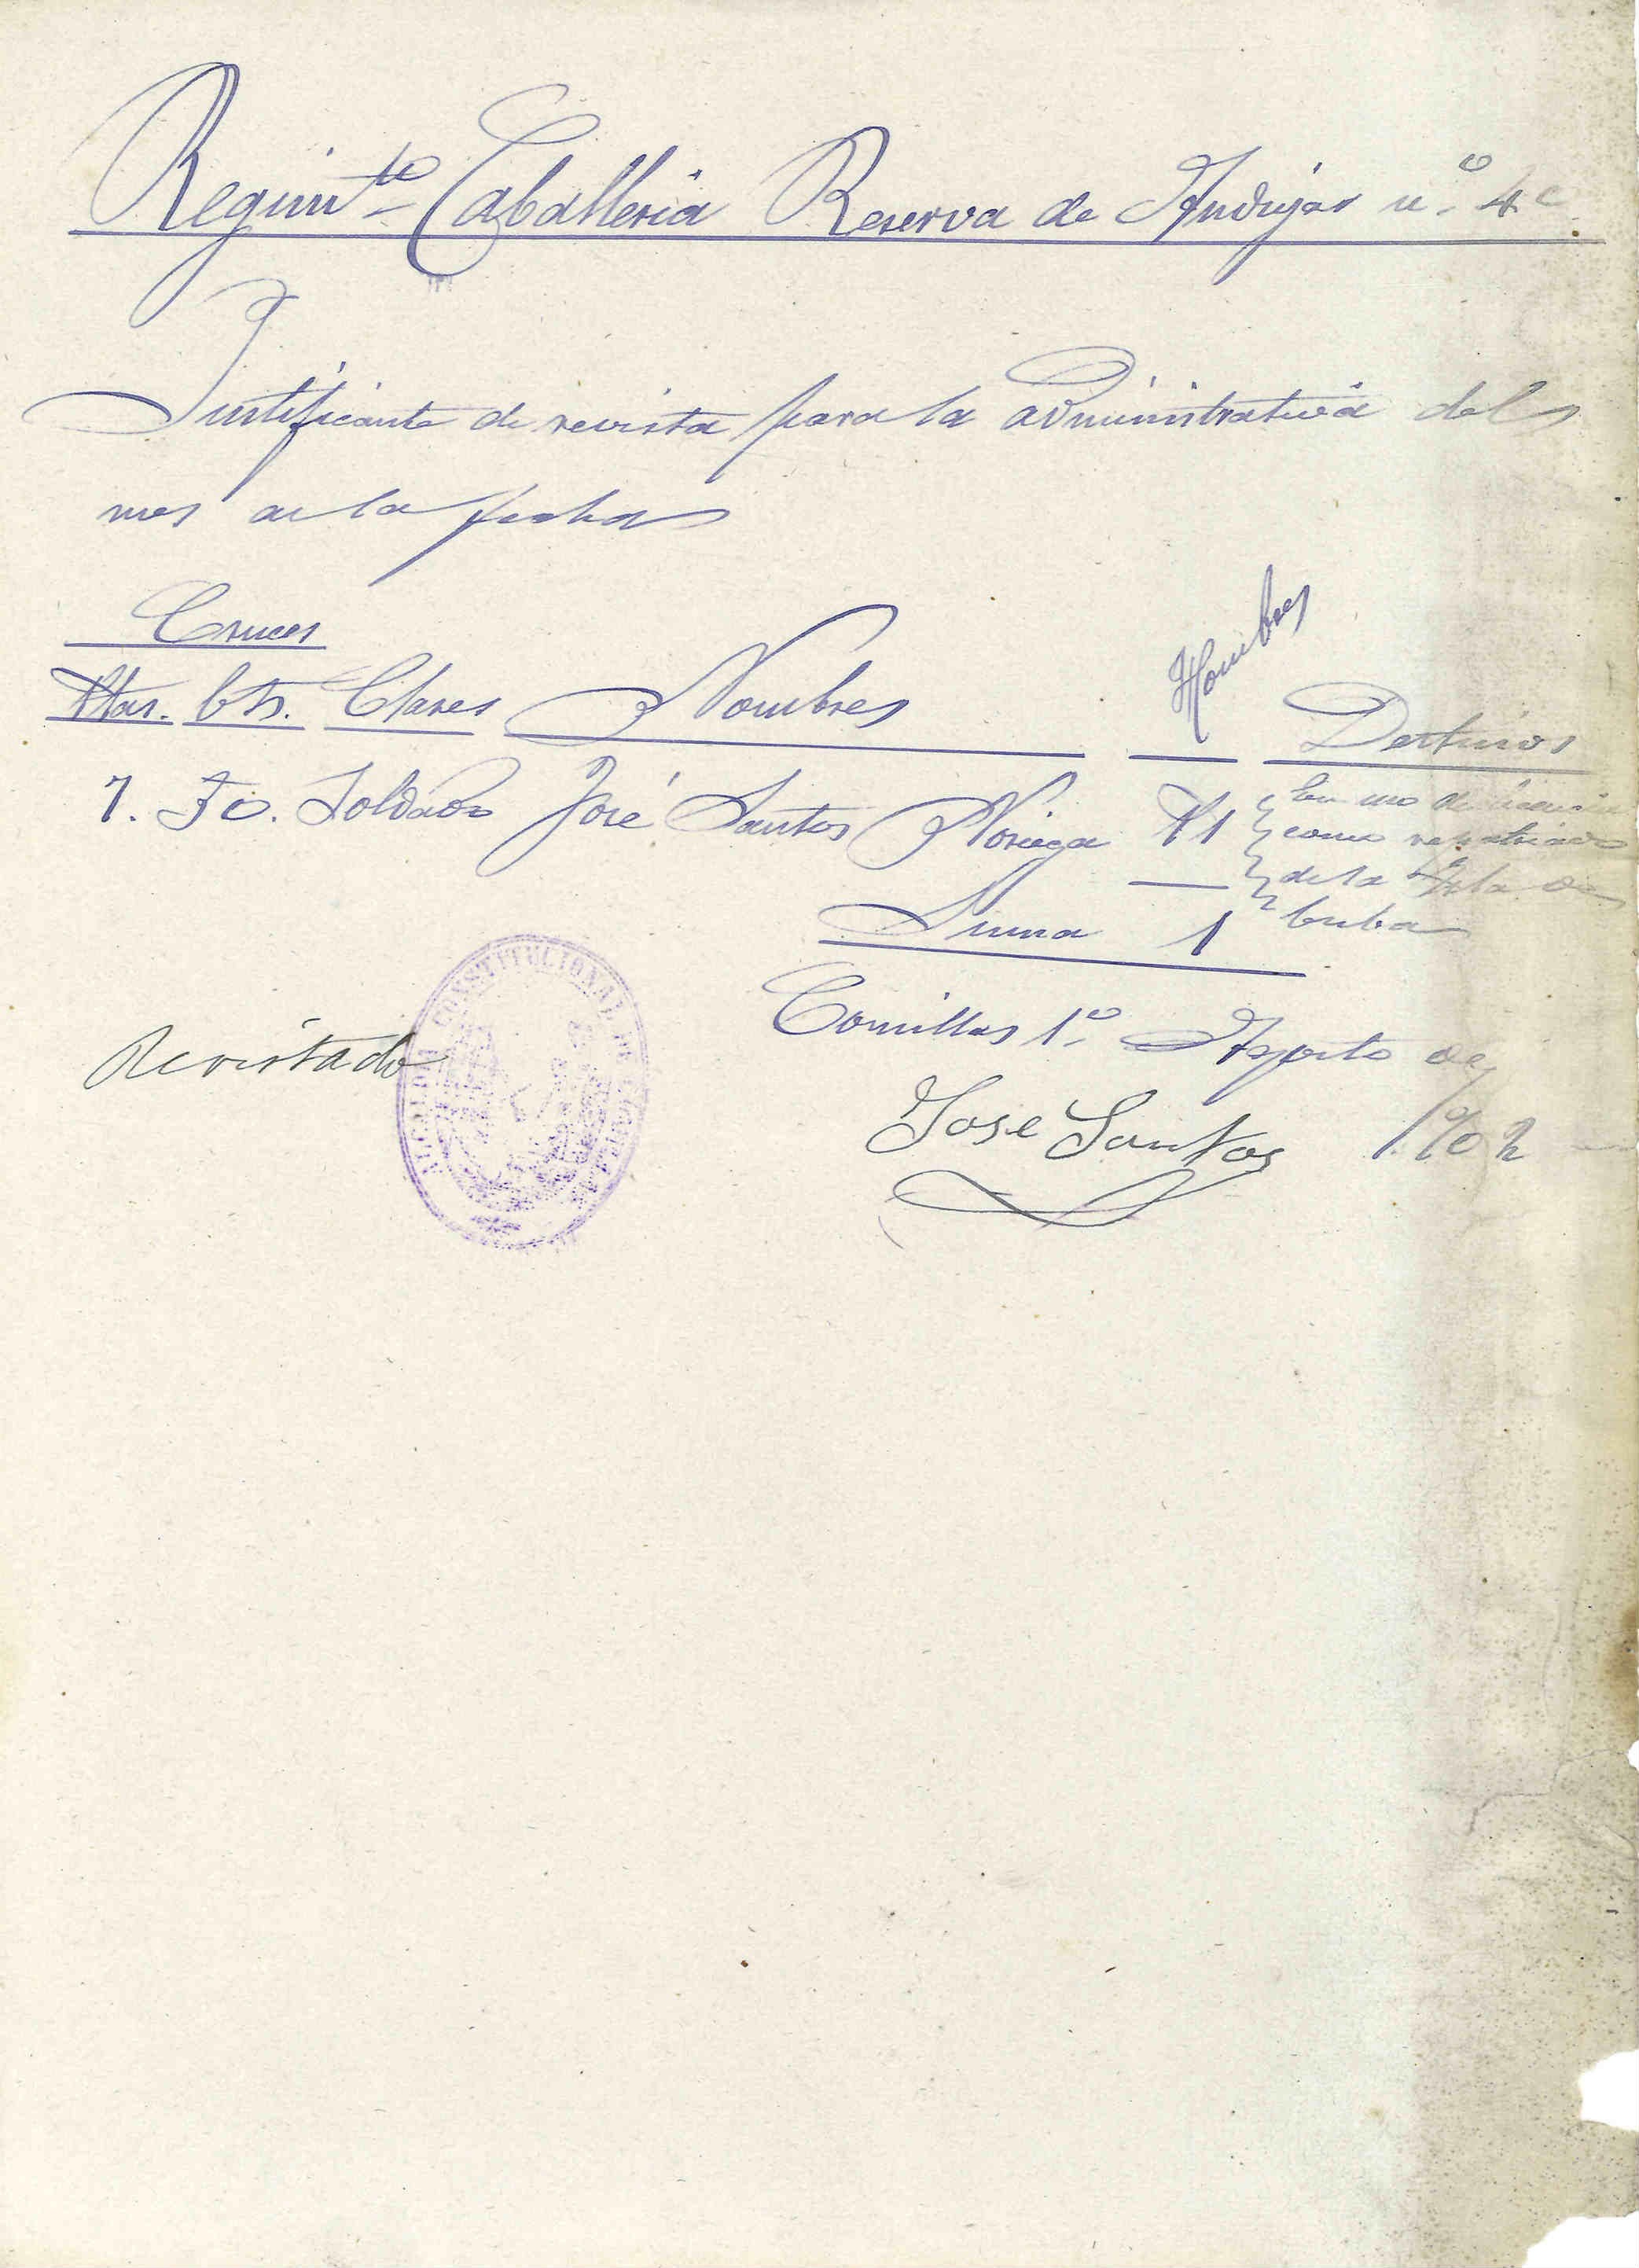 Regimto Caballeria Reserva de Andujar nº 4º
Justificante de revista para la administrativa del
mes de la fecha
Cruces
Ptas. Cts. Clases Nombres Hombres Destinos
7. 50. Soldado José Santos Noriega 1 En uso de licencia
como repatriado
de la Isla de
Cuba
Suma 1
Comillas 1º Agosto de
1902
Revistado
Jose Santos
ALCALDIA CONSTITUCIONAL DE COMILLAS